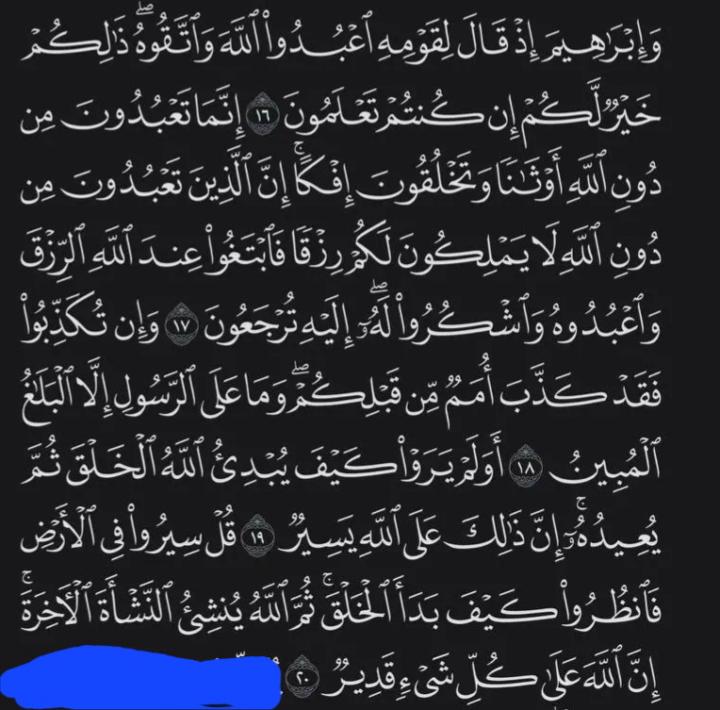 وَإِبْرَٰهِيمَ إِذْ قَالَ لِقَوْمِهِ ٱعْبُدُوا۟ ٱللَّهَ وَٱتَّقُوهُ ۖ ذَٰلِكُمْ
خَيْرٌ لَّكُمْ إِن كُنتُمْ تَعْلَمُونَ ١٦ إِنَّمَا تَعْبُدُونَ مِن
دُونِ ٱللَّهِ أَوْثَـٰنًا وَتَخْلُقُونَ إِفْكًا ۚ إِنَّ ٱلَّذِينَ تَعْبُدُونَ مِن
دُونِ ٱللَّهِ لَا يَمْلِكُونَ لَكُمْ رِزْقًا فَٱبْتَغُوا۟ عِندَ ٱللَّهِ ٱلرِّزْقَ
وَٱعْبُدُوهُ وَٱشْكُرُوا۟ لَهُۥٓ ۖ إِلَيْهِ تُرْجَعُونَ ١٧ وَإِن تُكَذِّبُوا۟
فَقَدْ كَذَّبَ أُمَمٌ مِّن قَبْلِكُمْ ۖ وَمَا عَلَى ٱلرَّسُولِ إِلَّا ٱلْبَلَـٰغُ
ٱلْمُبِينُ ١٨ أَوَلَمْ يَرَوْا۟ كَيْفَ يُبْدِئُ ٱللَّهُ ٱلْخَلْقَ ثُمَّ
يُعِيدُهُۥٓ ۚ إِنَّ ذَٰلِكَ عَلَى ٱللَّهِ يَسِيرٌ ١٩ قُلْ سِيرُوا۟ فِى ٱلْأَرْضِ
فَٱنظُرُوا۟ كَيْفَ بَدَأَ ٱلْخَلْقَ ۚ ثُمَّ ٱللَّهُ يُنشِئُ ٱلنَّشْأَةَ ٱلْـَٔاخِرَةَ ۚ
إِنَّ ٱللَّهَ عَلَىٰ كُلِّ شَىْءٍ قَدِيرٌ ٢٠